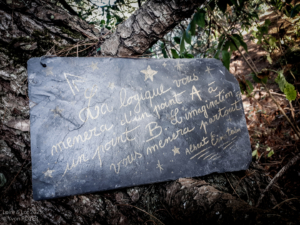 La logique vous
menera d'un point A à
un point B, l'imagination
vous menera partout
Albert Einstein